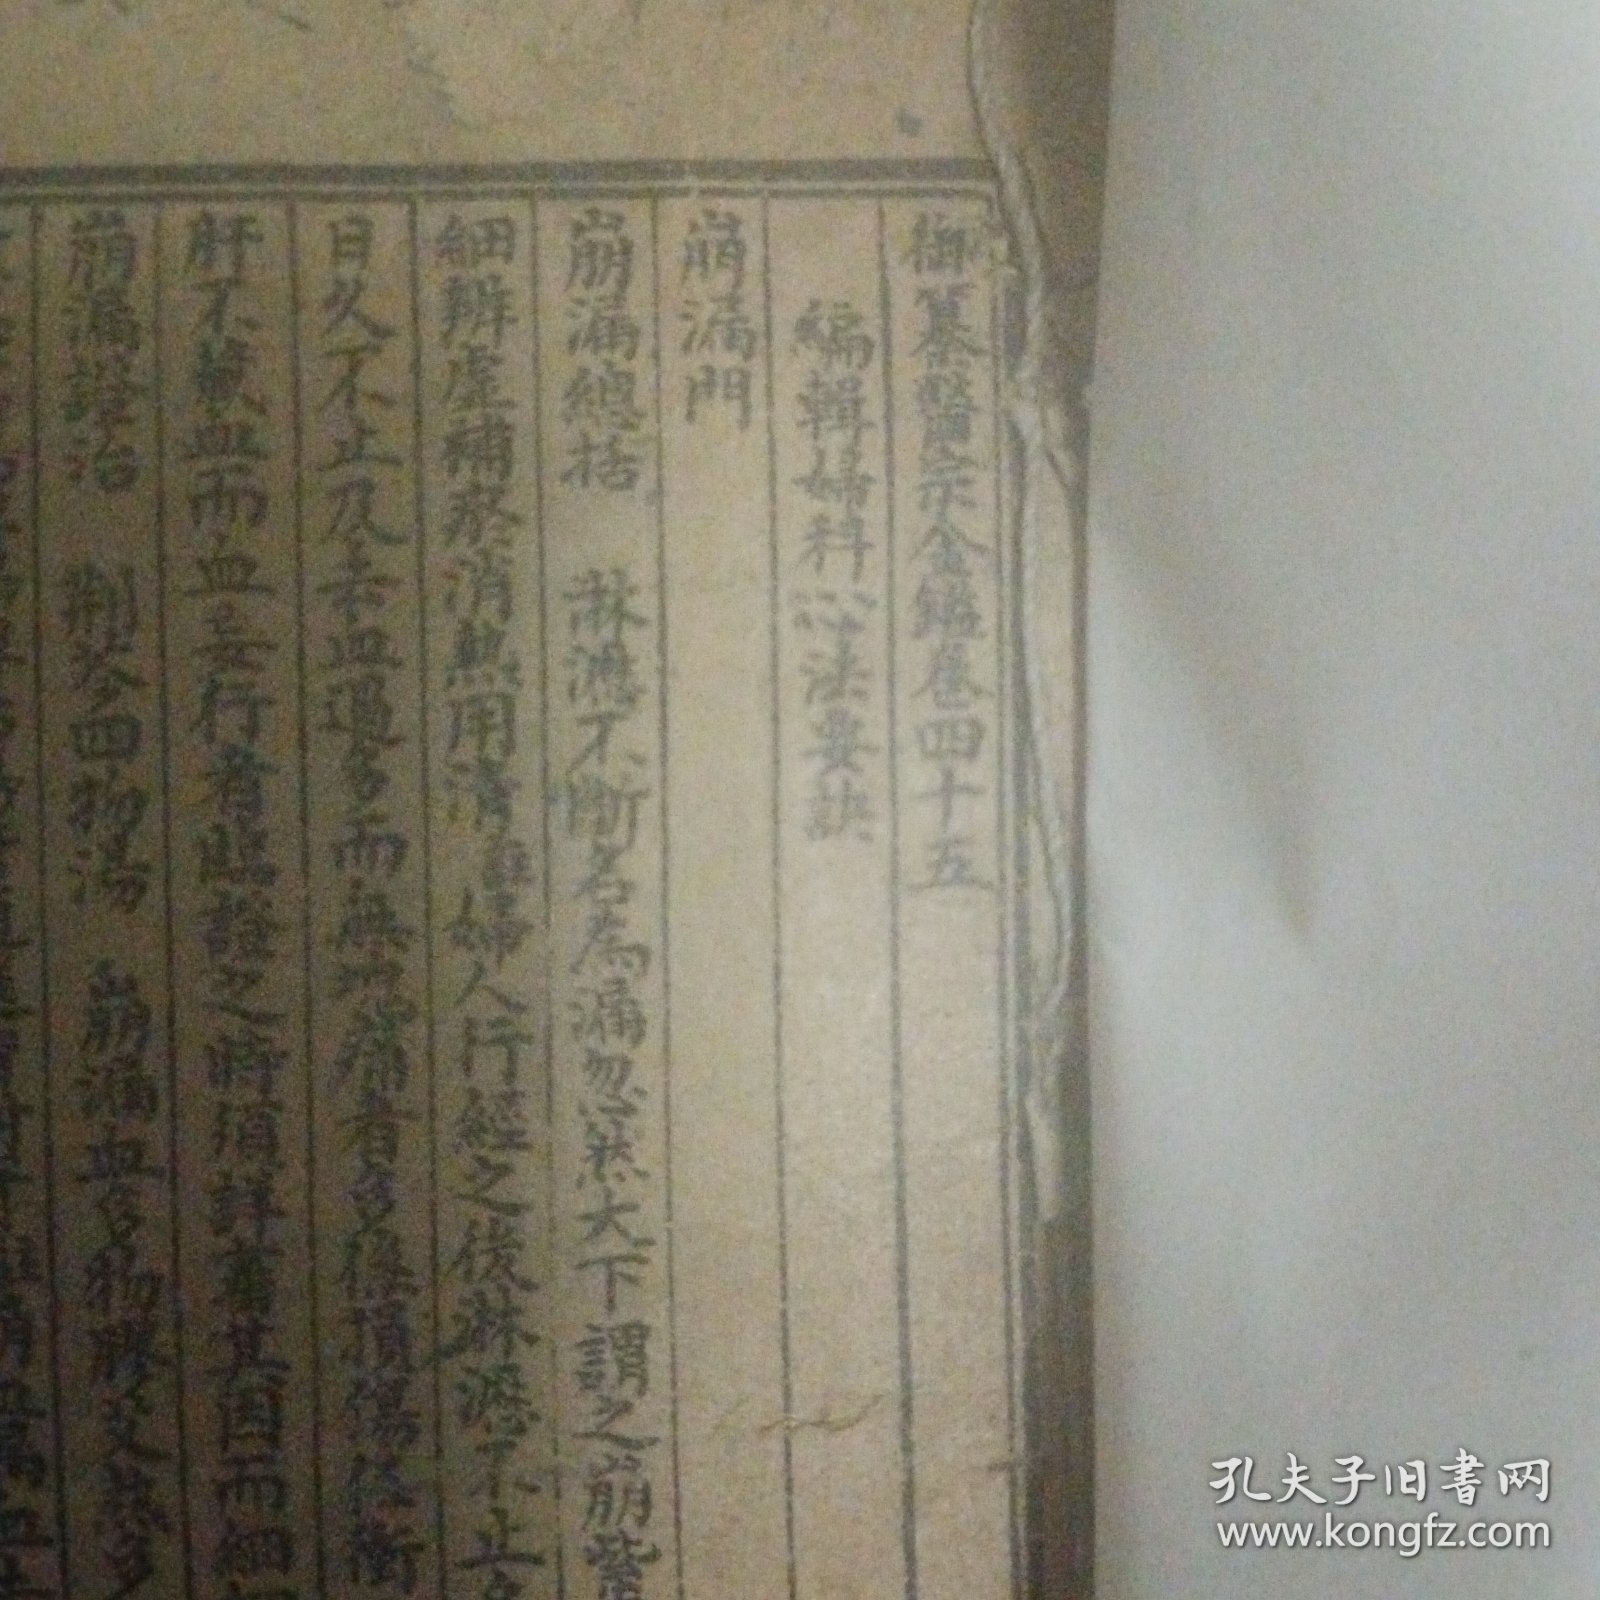 御纂醫宗金鑑卷四十五
編輯婦科心法要訣
崩漏門
崩漏總括 淋瀝不斷名為漏忽然大下謂之崩紫
細辨虛補瘀消熱用清 婦人行經之後淋瀝不止
日久不止及去血過多而無 痛者多係損傷任衝
肝不藏血而血妄行者臨證之時須詳審其因而細
崩漏證治 荊芩四物湯 崩漏血多物膠艾熱多
孔夫子旧书网
www.kongfz.com